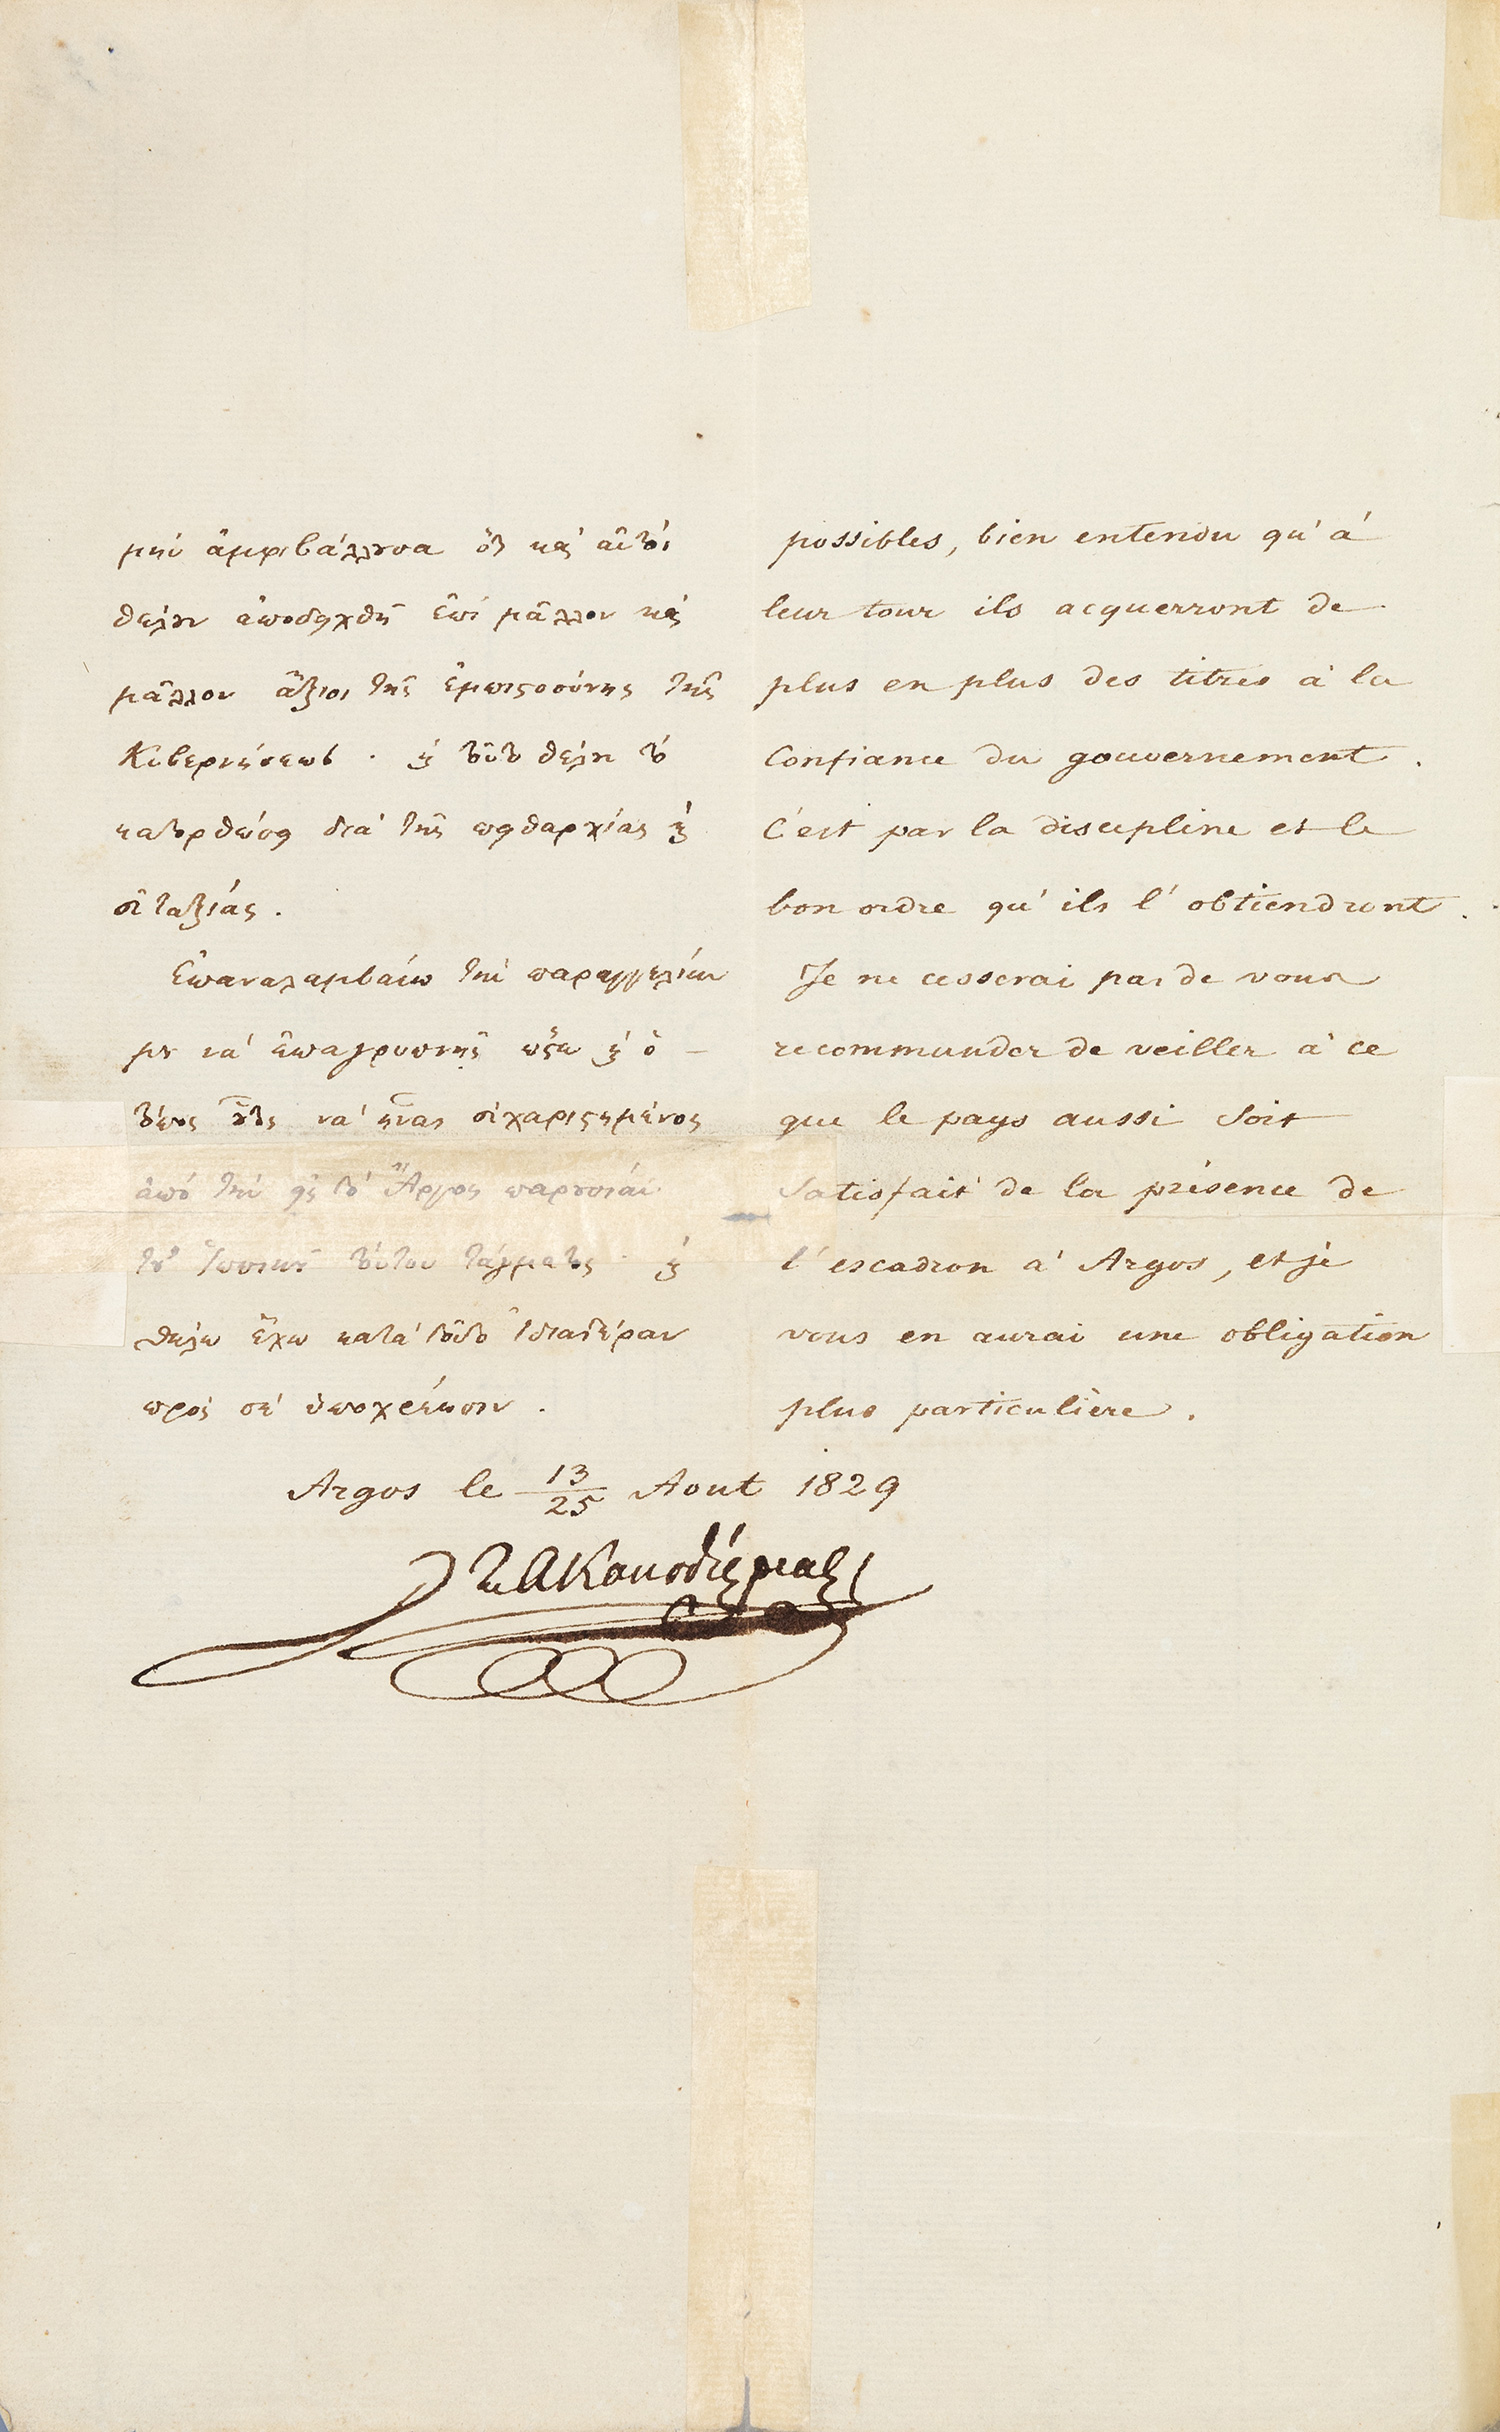 μὴν ἀμφιβάλλουσα ὅτι καὶ αὐτοὶ
θέλουν ἀποδειχθῆ ἐπὶ μᾶλλον καὶ
μᾶλλον ἄξιοι τῆς ἐμπιστοσύνης τῆς
Κυβερνήσεως · καὶ τοῦτο θέλουν τὸ
κατορθώσει διὰ τῆς πειθαρχίας καὶ
εὐταξίας .
Ἐπαναλαμβάνω τὴν παραγγελίαν
μου νὰ ἐπαγρυπνῇς ὥστε καὶ ὁ
τόπος οὗτος νὰ ἦναι εὐχαριστημένος
ἀπὸ τὴν εἰς τὸ Ἄργος παρουσίαν
τοῦ Ἱππικοῦ τούτου τάγματος · καὶ
θέλω ἔχω κατὰ τοῦτο ἰδιαιτέραν
πρὸς σὲ ὑποχρέωσιν .
possibles, bien entendu qu'à
leur tour ils acquerront de
plus en plus des titres à la
Confiance du gouvernement .
C'est par la discipline et le
bon ordre qu'ils l'obtiendront .
Je ne cesserai pas de vous
recommander de veiller à ce
que le pays aussi soit
satisfait de la présence de
l'escadron à Argos, et je
vous en aurai une obligation
plus particulière .
Argos le 13/25 Aout 1829
Ι Α Καποδίστριας